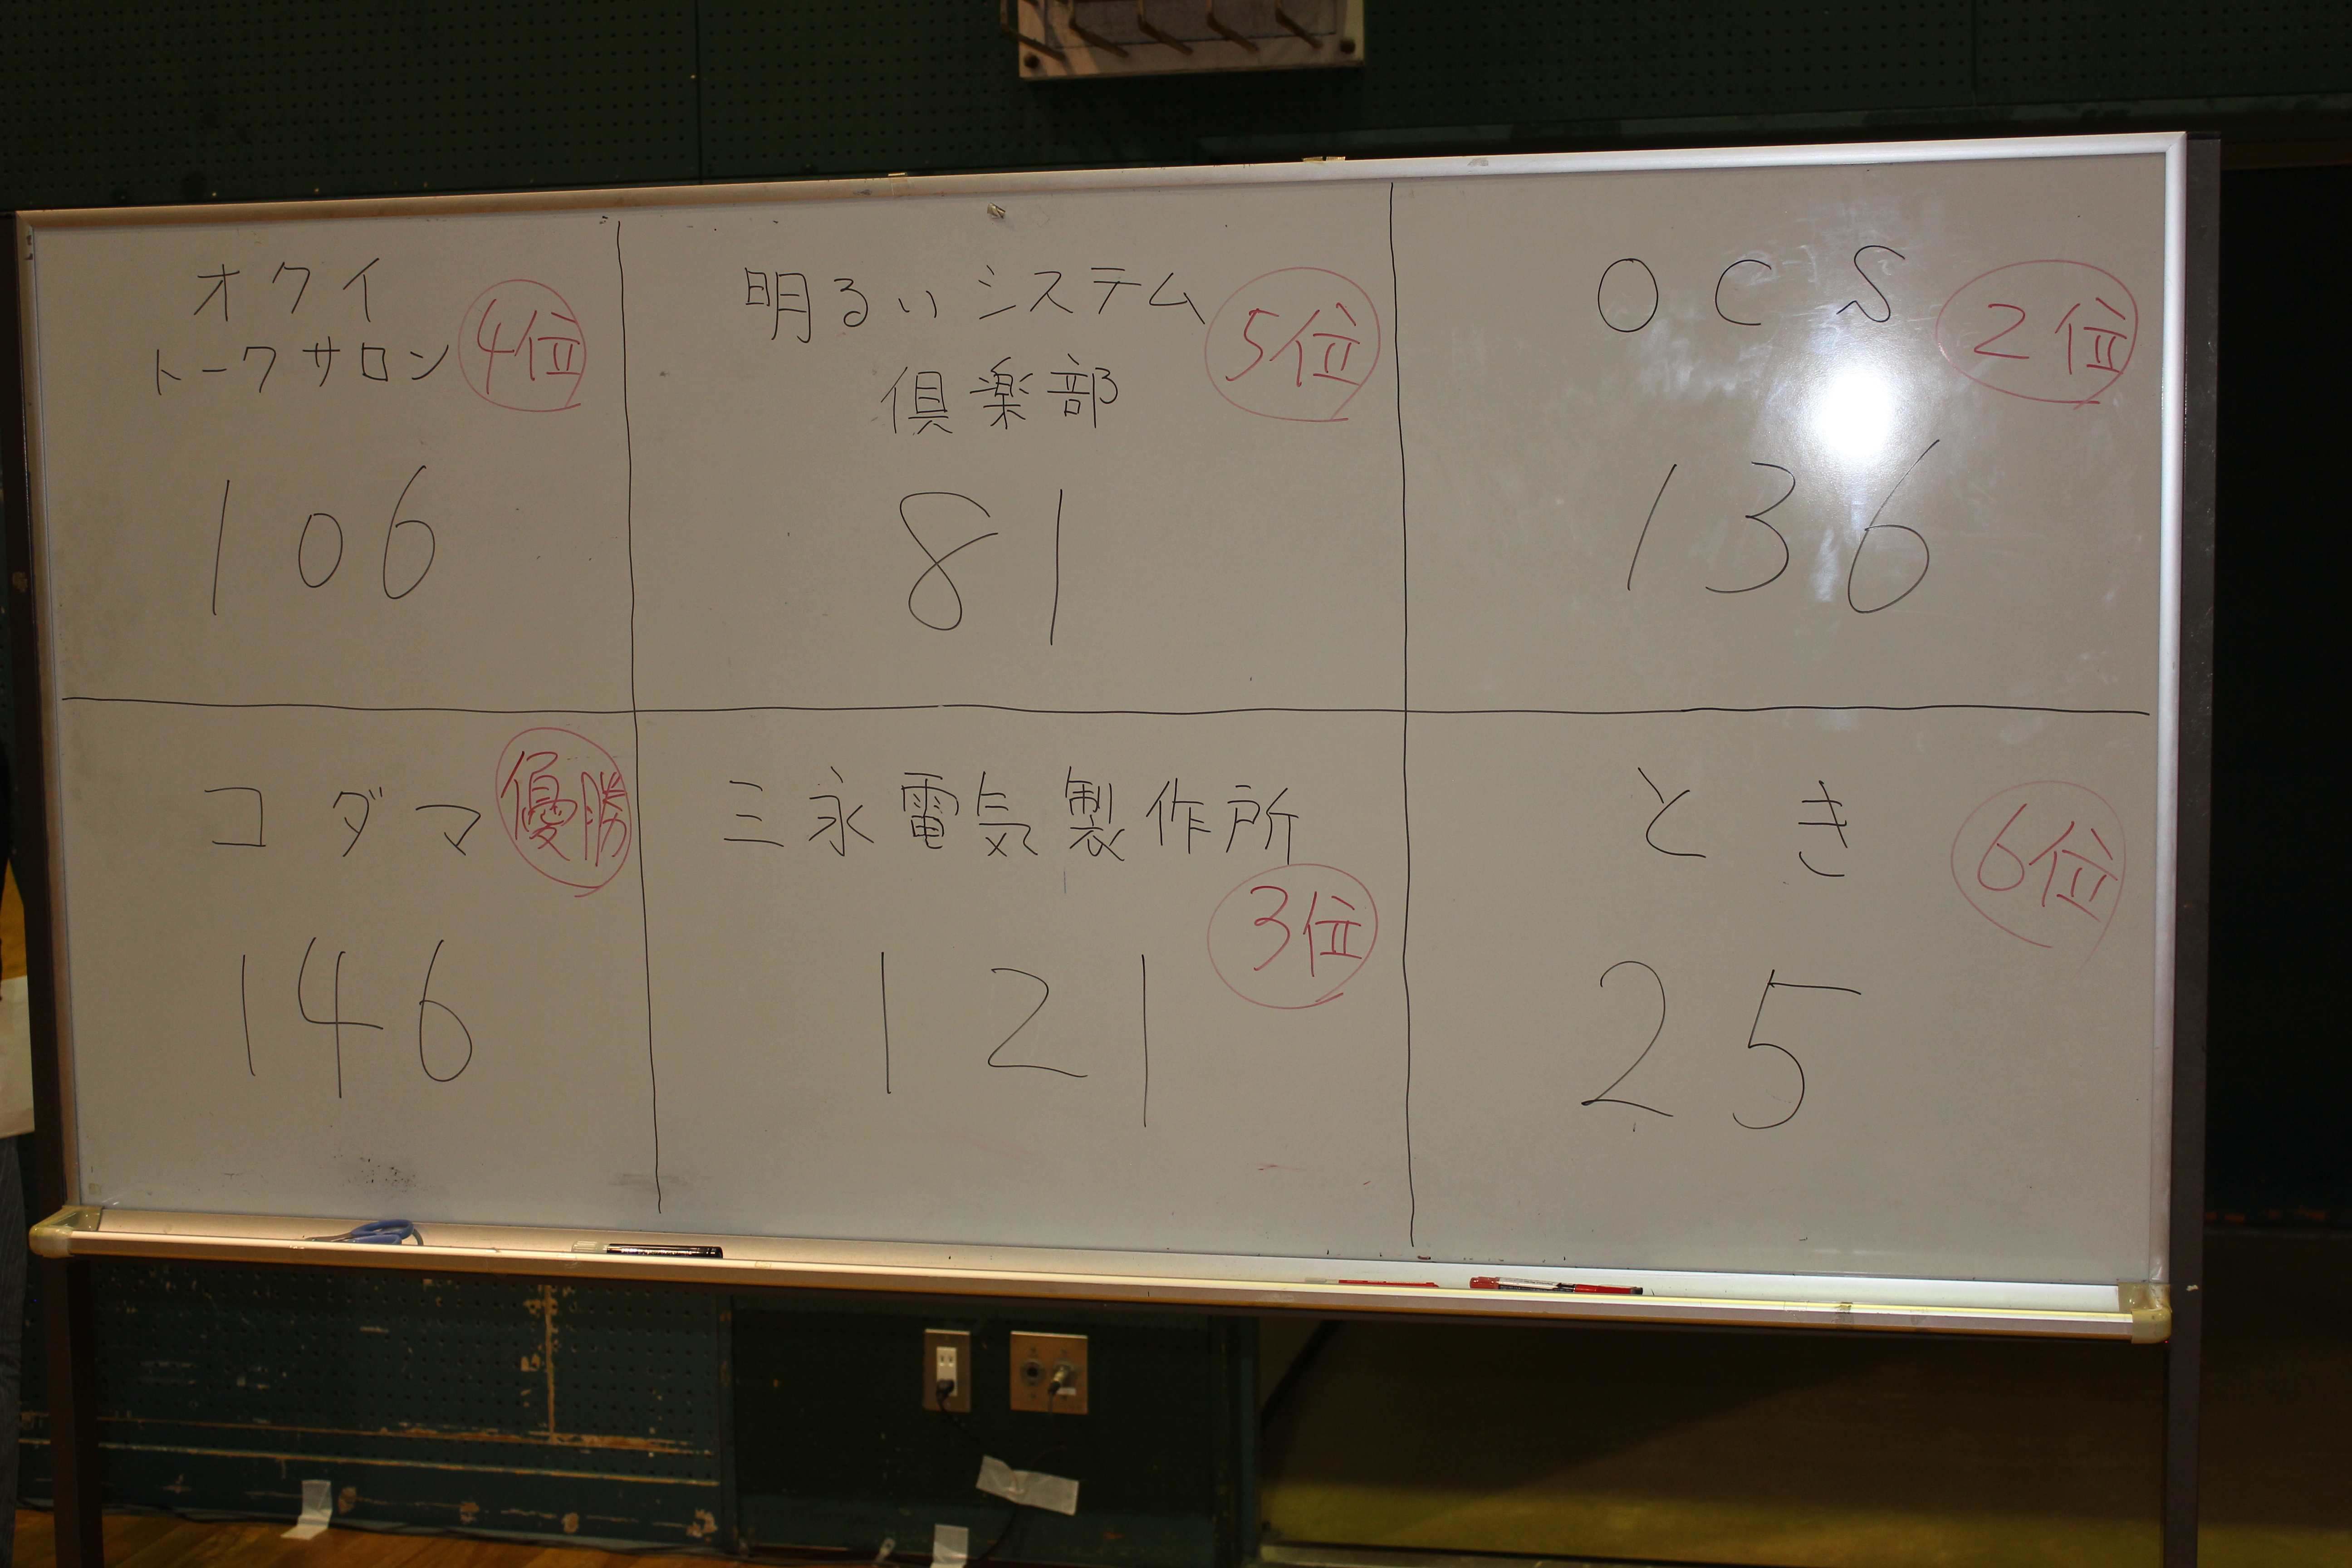 オクイ
トークサロン
4位
106
明るいシステム
倶楽部
5位
81
OCS
2位
136
コダマ
優勝
146
三永電気製作所
3位
121
とき
6位
25